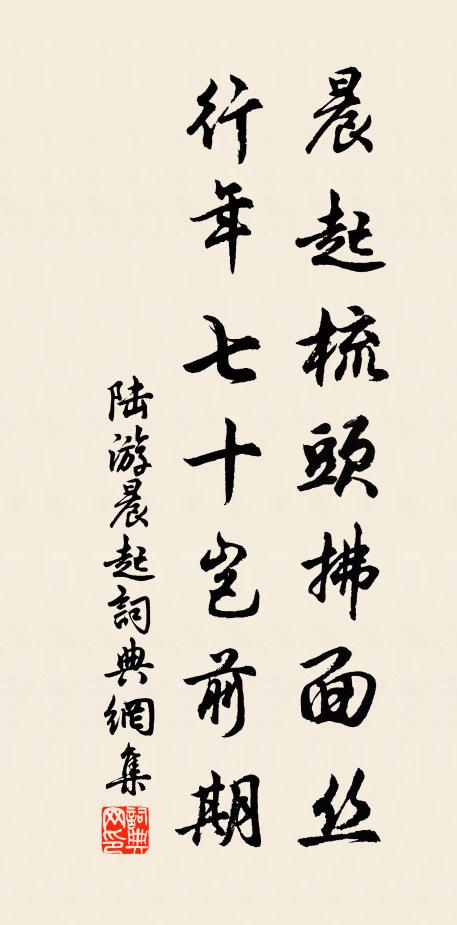 晨起梳頭拂面丝
行年七十岂前期
陆游晨起詞典網集
詞典网印